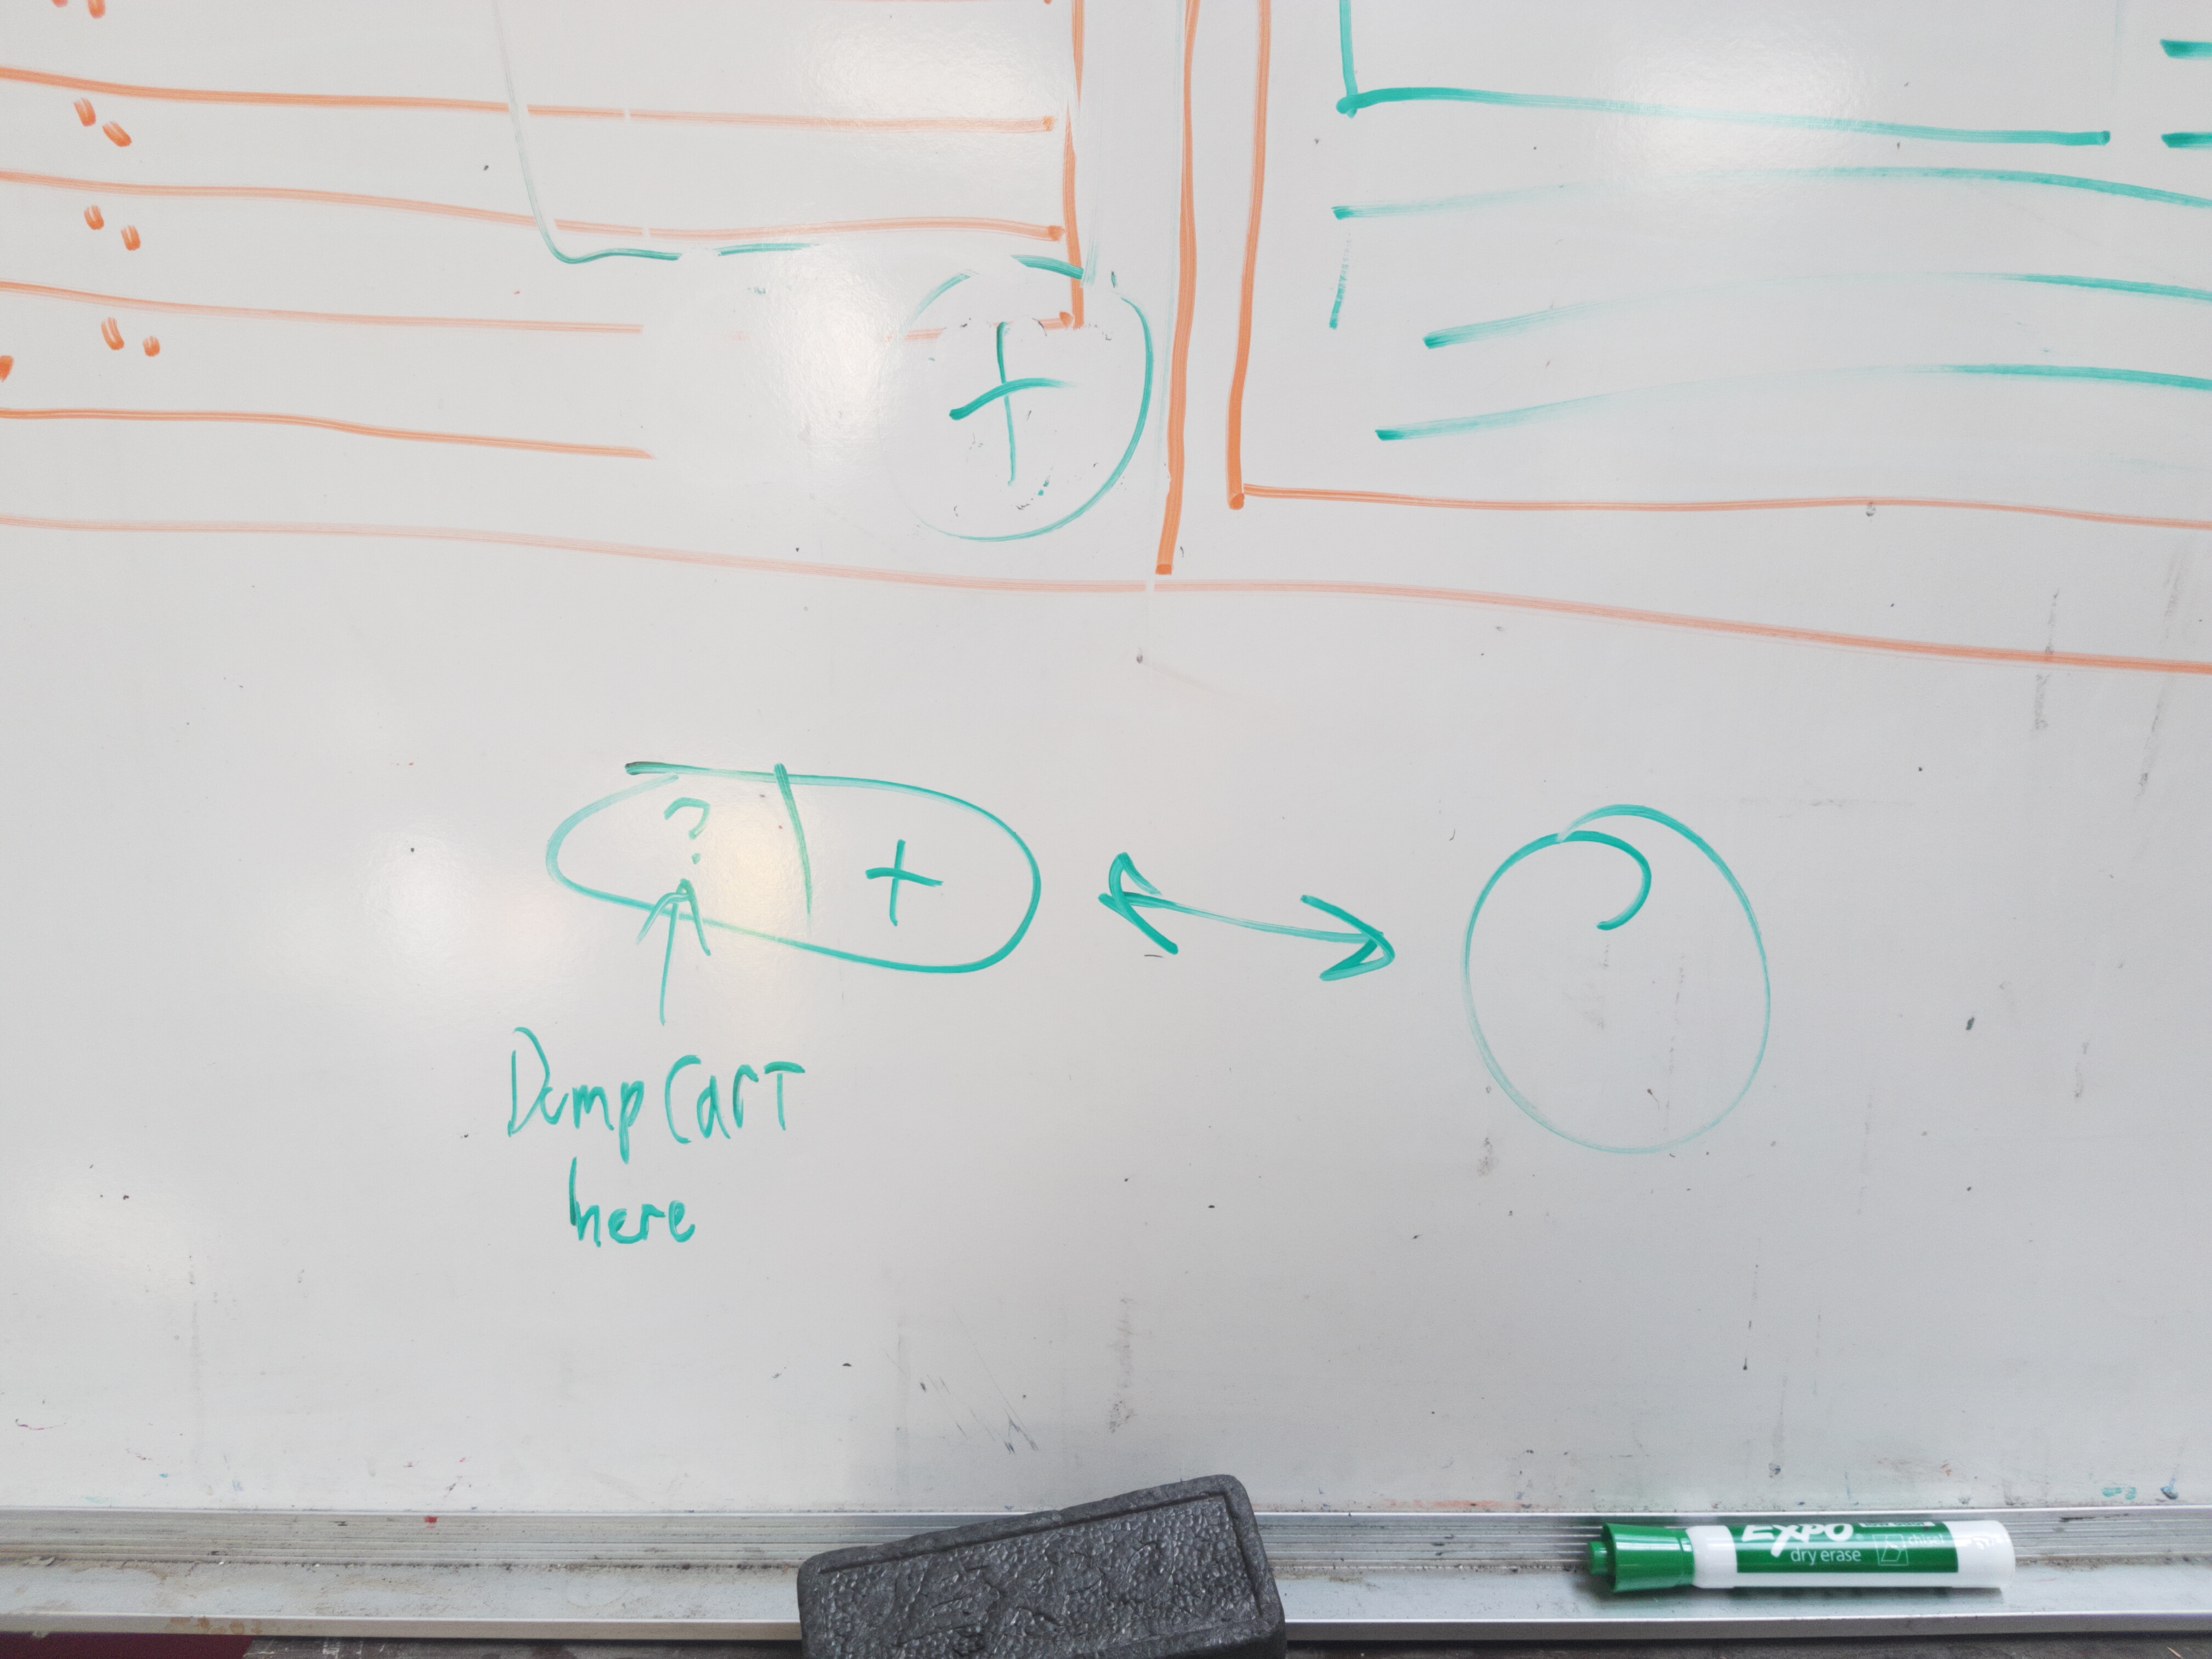 +
?
+
Dump Cart
here
EXPO
dry erase
chisel